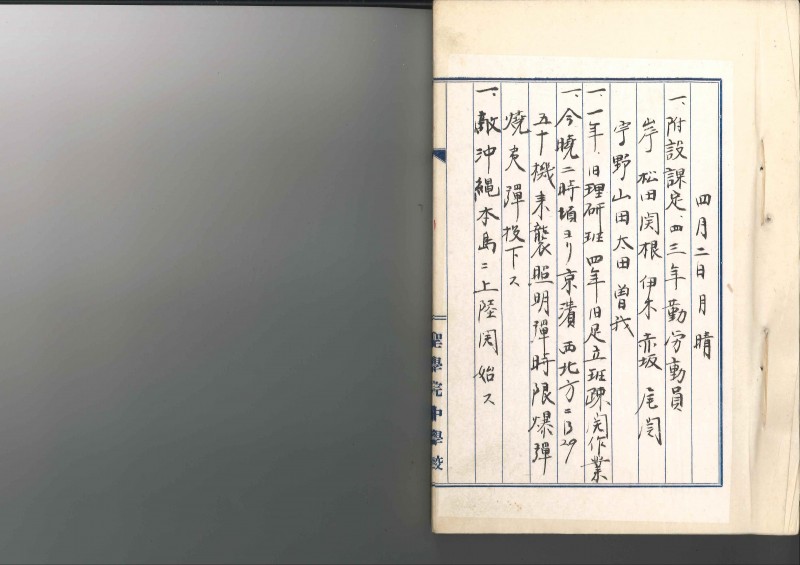 四月二日月晴
一、附設課定、四三年勤労動員
岸 松田関根 伊木 赤坂 尾関
宇野山田太田曽我
一、一年、旧理研班 四年旧足立班疎開作業
一、今暁二時頃ヨリ京濱西北方ニB29
五十機来襲照明彈時限爆彈
焼夷彈投下ス
一、敵沖縄本島ニ上陸開始ス
聖學院中學校